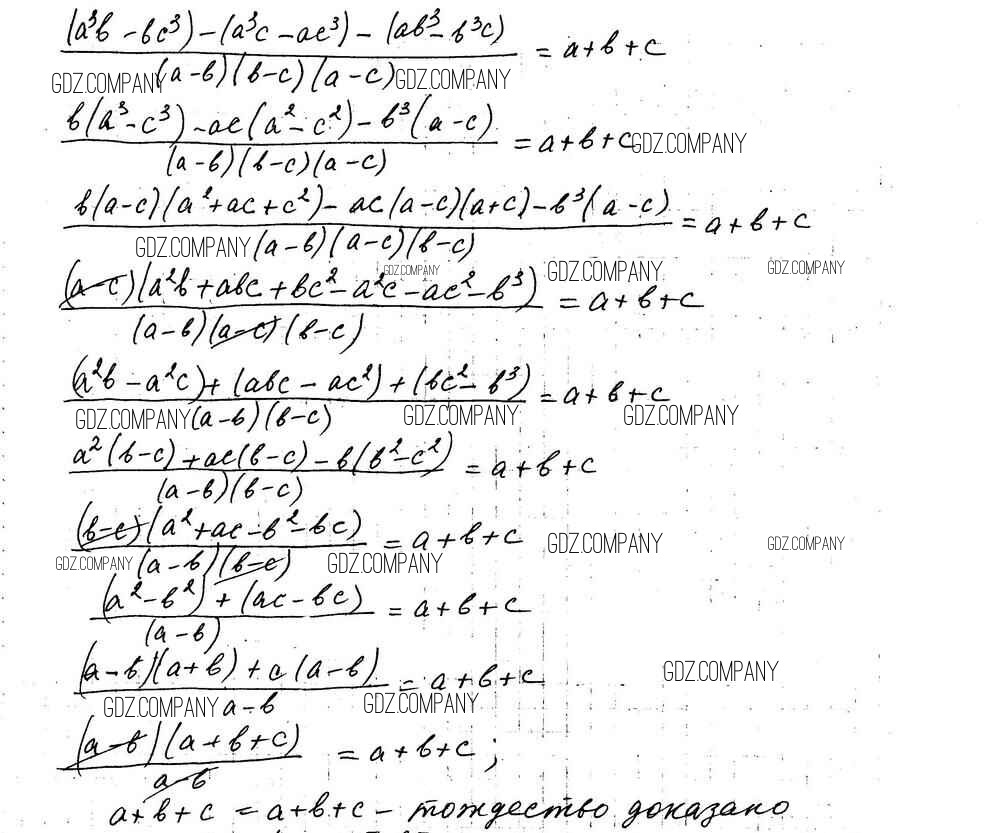 (a³b - bc³) - (a³c - ac³) - (ab³ - b³c) / (a-b)(b-c)(a-c) = a+b+c
GDZ.COMPANY GDZ.COMPANY
b(a³-c³) - ac(a²-c²) - b³(a-c) / (a-b)(b-c)(a-c) = a+b+c
GDZ.COMPANY
b(a-c)(a²+ac+c²) - ac(a-c)(a+c) - b³(a-c) / (a-b)(a-c)(b-c) = a+b+c
GDZ.COMPANY
GDZ.COMPANY GDZ.COMPANY GDZ.COMPANY
(a-c)(a²b+abc+bc²-a²c-ac²-b³) / (a-b)(a-c)(b-c) = a+b+c
(a²b - a²c) + (abc - ac²) + (bc² - b³) / (a-b)(b-c) = a+b+c
GDZ.COMPANY GDZ.COMPANY GDZ.COMPANY
a²(b-c) + ac(b-c) - b(b²-c²) / (a-b)(b-c) = a+b+c
(b-c)(a²+ac-b²-bc) / (a-b)(b-c) = a+b+c
GDZ.COMPANY GDZ.COMPANY
GDZ.COMPANY GDZ.COMPANY
(a²-b²) + (ac-bc) / (a-b) = a+b+c
(a-b)(a+b) + c(a-b) / a-b = a+b+c
GDZ.COMPANY
GDZ.COMPANY GDZ.COMPANY
(a-b)(a+b+c) / a-b = a+b+c;
a+b+c = a+b+c - тождество доказано